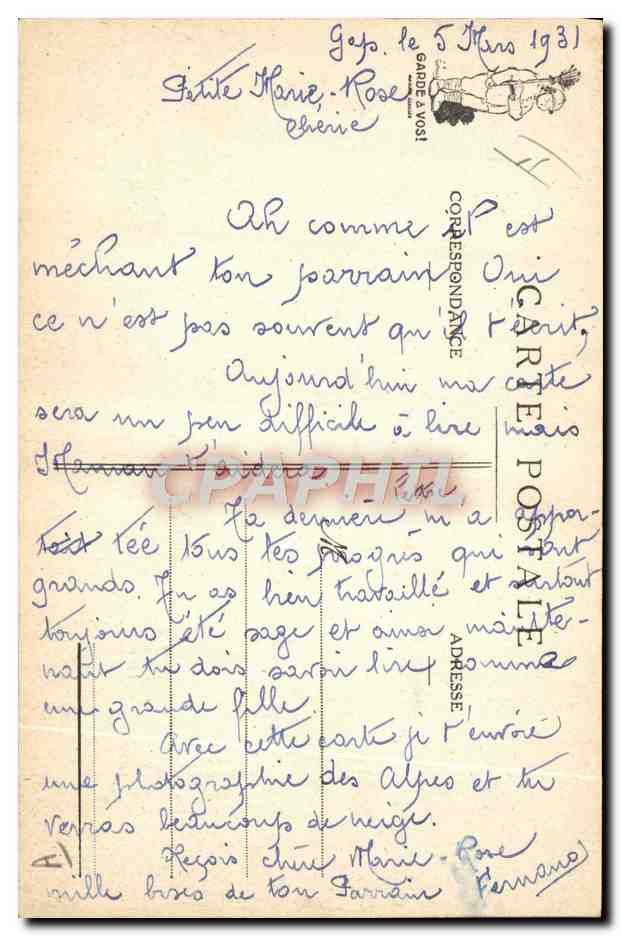 Gap. le 5 Mars 1931
Petite Marie-Rose
chérie
GARDE À VOS!
CORRESPONDANCE
CARTE POSTALE
ADRESSE
Ah comme il est
méchant ton parrain Oui
ce n'est pas souvent qu'il t'écrit,
Aujourd'hui ma carte
sera un peu difficile à lire mais
Maman t'aidera
Ta dernière lettre m'a appor-
tée tous tes progrès qui sont
grands. Tu as bien travaillé et surtout
toujours été sage et ainsi mainte-
nant tu dois savoir lire comme
une grande fille.
Avec cette carte je t'envoie
une photographie des Alpes et tu
verras beaucoup de neige.
Reçois chère Marie-Rose
mille bises de ton Parrain Fernand
M
CPAPHIL